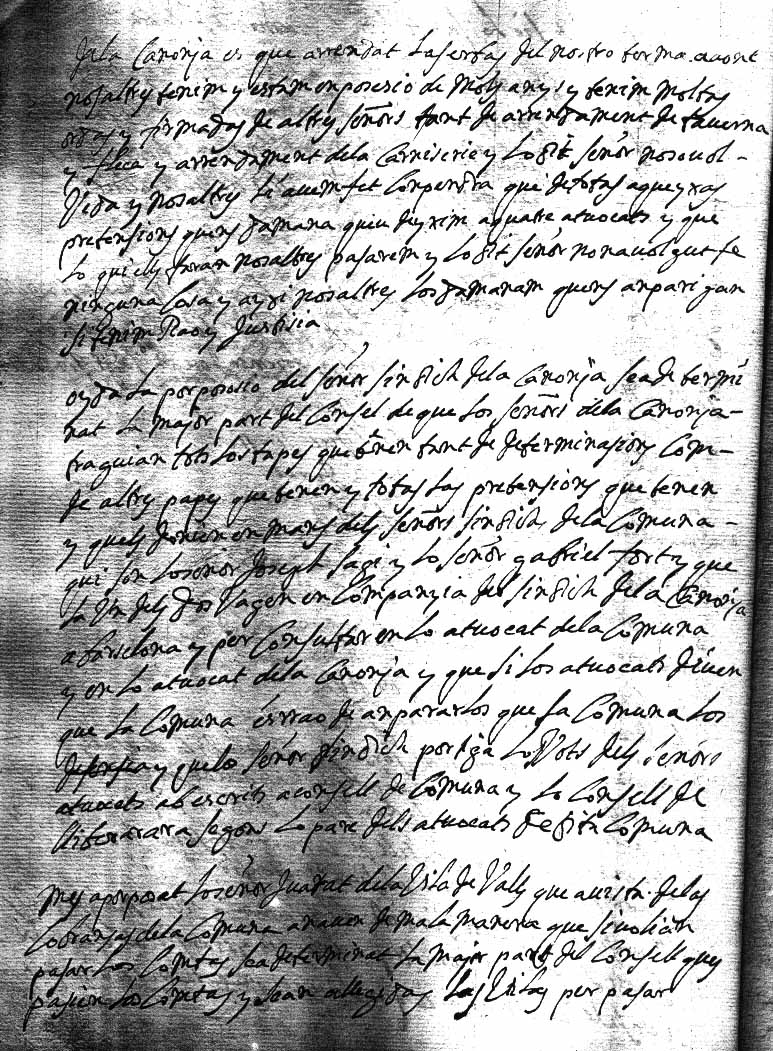 dela Canonja es que arrendat las erbas del nostro terme avont
nosaltrs tenim y estam en posesio de mols anys y tenim moltas
ordas y firmadas de altrs señors tant de arrendament de taverna
y fleca y arrendament dela Carniseria y lo dit señor no so vol -
y nosaltrs li avem fet Conpendra que de totas aqueyxas
pretensions quens damana queu deyxim a quatre atvocats y que
lo que ells faran nosaltres pasarem y lo dit señor no na volgut fe
ninguna Cosa y ayxi nosaltres los damanam quens anparigan
si tenim Rao y Justisia
oyda la porposisio del señor sindich dela Canonja sea determi
nat la major part del Consel de que los señors dela Canonja -
traguian tots los papes que tenen tant de determinasions Com -
de altrs papes que tenen y totas las pretensions que tenen
y quels donien en mans dels señors sindichs dela Comuna -
qui son lo señor Joseph Sagi y lo señor gabriel fort y que
la Un dels dos Vagen en Companyia del sindich dela Canonja
a barselona y per Consultar en lo atvocat dela Comuna
y en lo atvocat dela Canonja y que si los atvocats diuen
que la Comuna es rrao de anpararlos que la Comuna los
defensia y quelo señor sindich portiga los Vots dels señors
atvocats ab escrits a consell de Comuna y lo Consell de
lliberarara segons lo pare dels atvocats de dita Comuna
mes a porposat lo señor Jurat dela Vila de Valls que avista delas
Cobransas dela Comuna anaven de mala manera que si volian
pasar los Comtas sea determinat la major part del Consell ques
pasien los Comtas y sean allegidas las Vilas per pasar